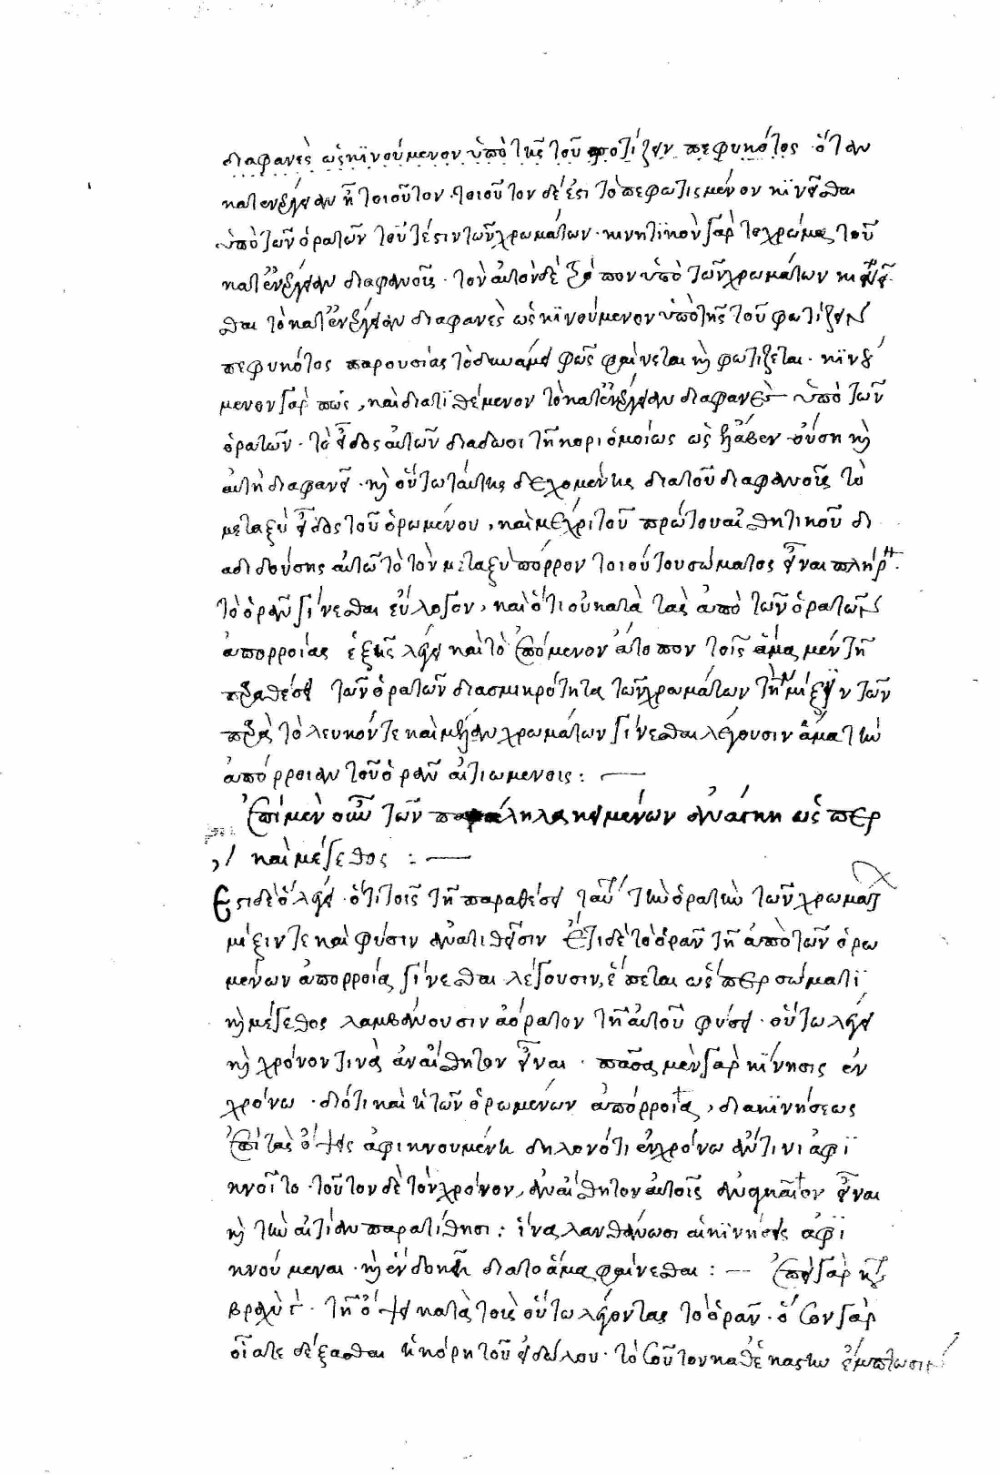 διαφανὲς ὡς κινούμενον ὑπὸ τῆς τοῦ φωτίζειν πεφυκότος · ὅταν
κατενέργειαν ἦ τοιοῦτον · τοιοῦτον δέ ἐστι τὸ πεφωτισμένον κινεῖσθαι
ὑπὸ τῶν ὁρατῶν τουτέστιν τῶν χρωμάτων · κινητικὸν γὰρ τὸ χρῶμα τοῦ
κατ ἐνέργειαν διαφανοῦς · τὸν αὐτὸν δὲ τρόπον ὑπὸ τῶν χρωμάτων κινεῖ
σθαι τὸ κατ ἐνέργειαν διαφανὲς ὡς κινούμενον ὑπὸ τῆς τοῦ φωτίζειν
πεφυκότος παρουσίας τὸ δυνάμει φῶς φαίνεται καὶ φωτίζεται · κινού
μενον γάρ πως, καὶ διατιθέμενον τὸ κατ ἐνέργειαν διαφανὲς ὑπὸ τῶν
ὁρατῶν · τὸ εἶδος αὐτῶν διαδίδωσι τῇ κόρῃ ὁμοίως ὡς ἔλαβεν οὔσῃ καὶ
αὐτῇ διαφανεῖ · καὶ οὕτω ταύτης δεχομένης διὰ τοῦ διαφανοῦς τὸ
μεταξὺ εἶδος τοῦ ὁρωμένου, καὶ μέχρι τοῦ πρώτου αἰσθητικοῦ δι
αδιδούσης αὐτῶ τὸ τὸν μεταξὺ πόρρον τοιούτου σώματος εἶναι πλήρη ·
τὸ ὁρᾶν γίνεσθαι εὔλογον, καὶ ὅτι οὐ κατὰ τὰς ἀπὸ τῶν ὁρατῶν
ἀπορροίας ἑξῆς λέγει καὶ τὸ ἑπόμενον ἄτοπον τοῖς ἅμα μὲν τῇ
παραθέσει τῶν ὁρατῶν διὰ σμικρότητα τῶν χρωμάτων τὴν μίξιν τῶν
παρὰ τὸ λευκόν τε καὶ μέλαν χρωμάτων γίνεσθαι λέγουσιν ἅμα τὴν
ἀπόρροιαν τοῦ ὁρᾶν αἰτιωμένοις :
Ἐπὶ μὲν οὖν τῶν παράλληλα κειμένων ἀνάγκη ὥσπερ
καὶ μέγεθος :
Ἐστι δὲ ὃ λέγει · ὅτι τοῖς τῇ παραθέσει ταύτῃ τὴν ὁρατὴν τῶν χρωμάτων
μίξιν τε καὶ φύσιν ἀνατιθεῖσιν ἔτι δὲ τὸ ὁρᾶν τῇ ἀπὸ τῶν ὁρω
μένων ἀπορροίᾳ γίνεσθαι λέγουσιν, ἕπεται ὥσπερ σώματι
καὶ μέγεθος λαμβάνουσιν ἀόρατον τῇ αὐτοῦ φύσει · οὕτω λέγει
καὶ χρόνον τινὰ ἀναίσθητον εἶναι · πᾶσα μὲν γὰρ κίνησις ἐν
χρόνω · διότι καὶ ἡ τῶν ὁρωμένων ἀπόρροια, διὰ κινήσεως
ἐπὶ τὰς ὄψεις ἀφικνουμένη δηλονότι ἐν χρόνω ἄν τινι ἀφι
κνοῖτο · τοῦτον δὲ τὸν χρόνον, ἀναίσθητον αὐτοῖς ἀναγκαῖον εἶναι
καὶ τὴν αἰτίαν παρατίθησι : ἵνα λανθάνωσι αἱ κινήσεις ἀφι
κνούμεναι · καὶ ἐν δοκῇ διὰ τὸ ἅμα φαίνεσθαι : Ἐπεὶ γὰρ
βραχὺ τῇ ὄψει κατὰ τοὺς οὕτω λέγοντας τὸ ὁρᾶν · ὅσον γὰρ
οἷά τε δέξασθαι ἡ κόρη τοῦ εἰδώλου · τοσοῦτον καθ ἑκάστην ἔμπτωσιν